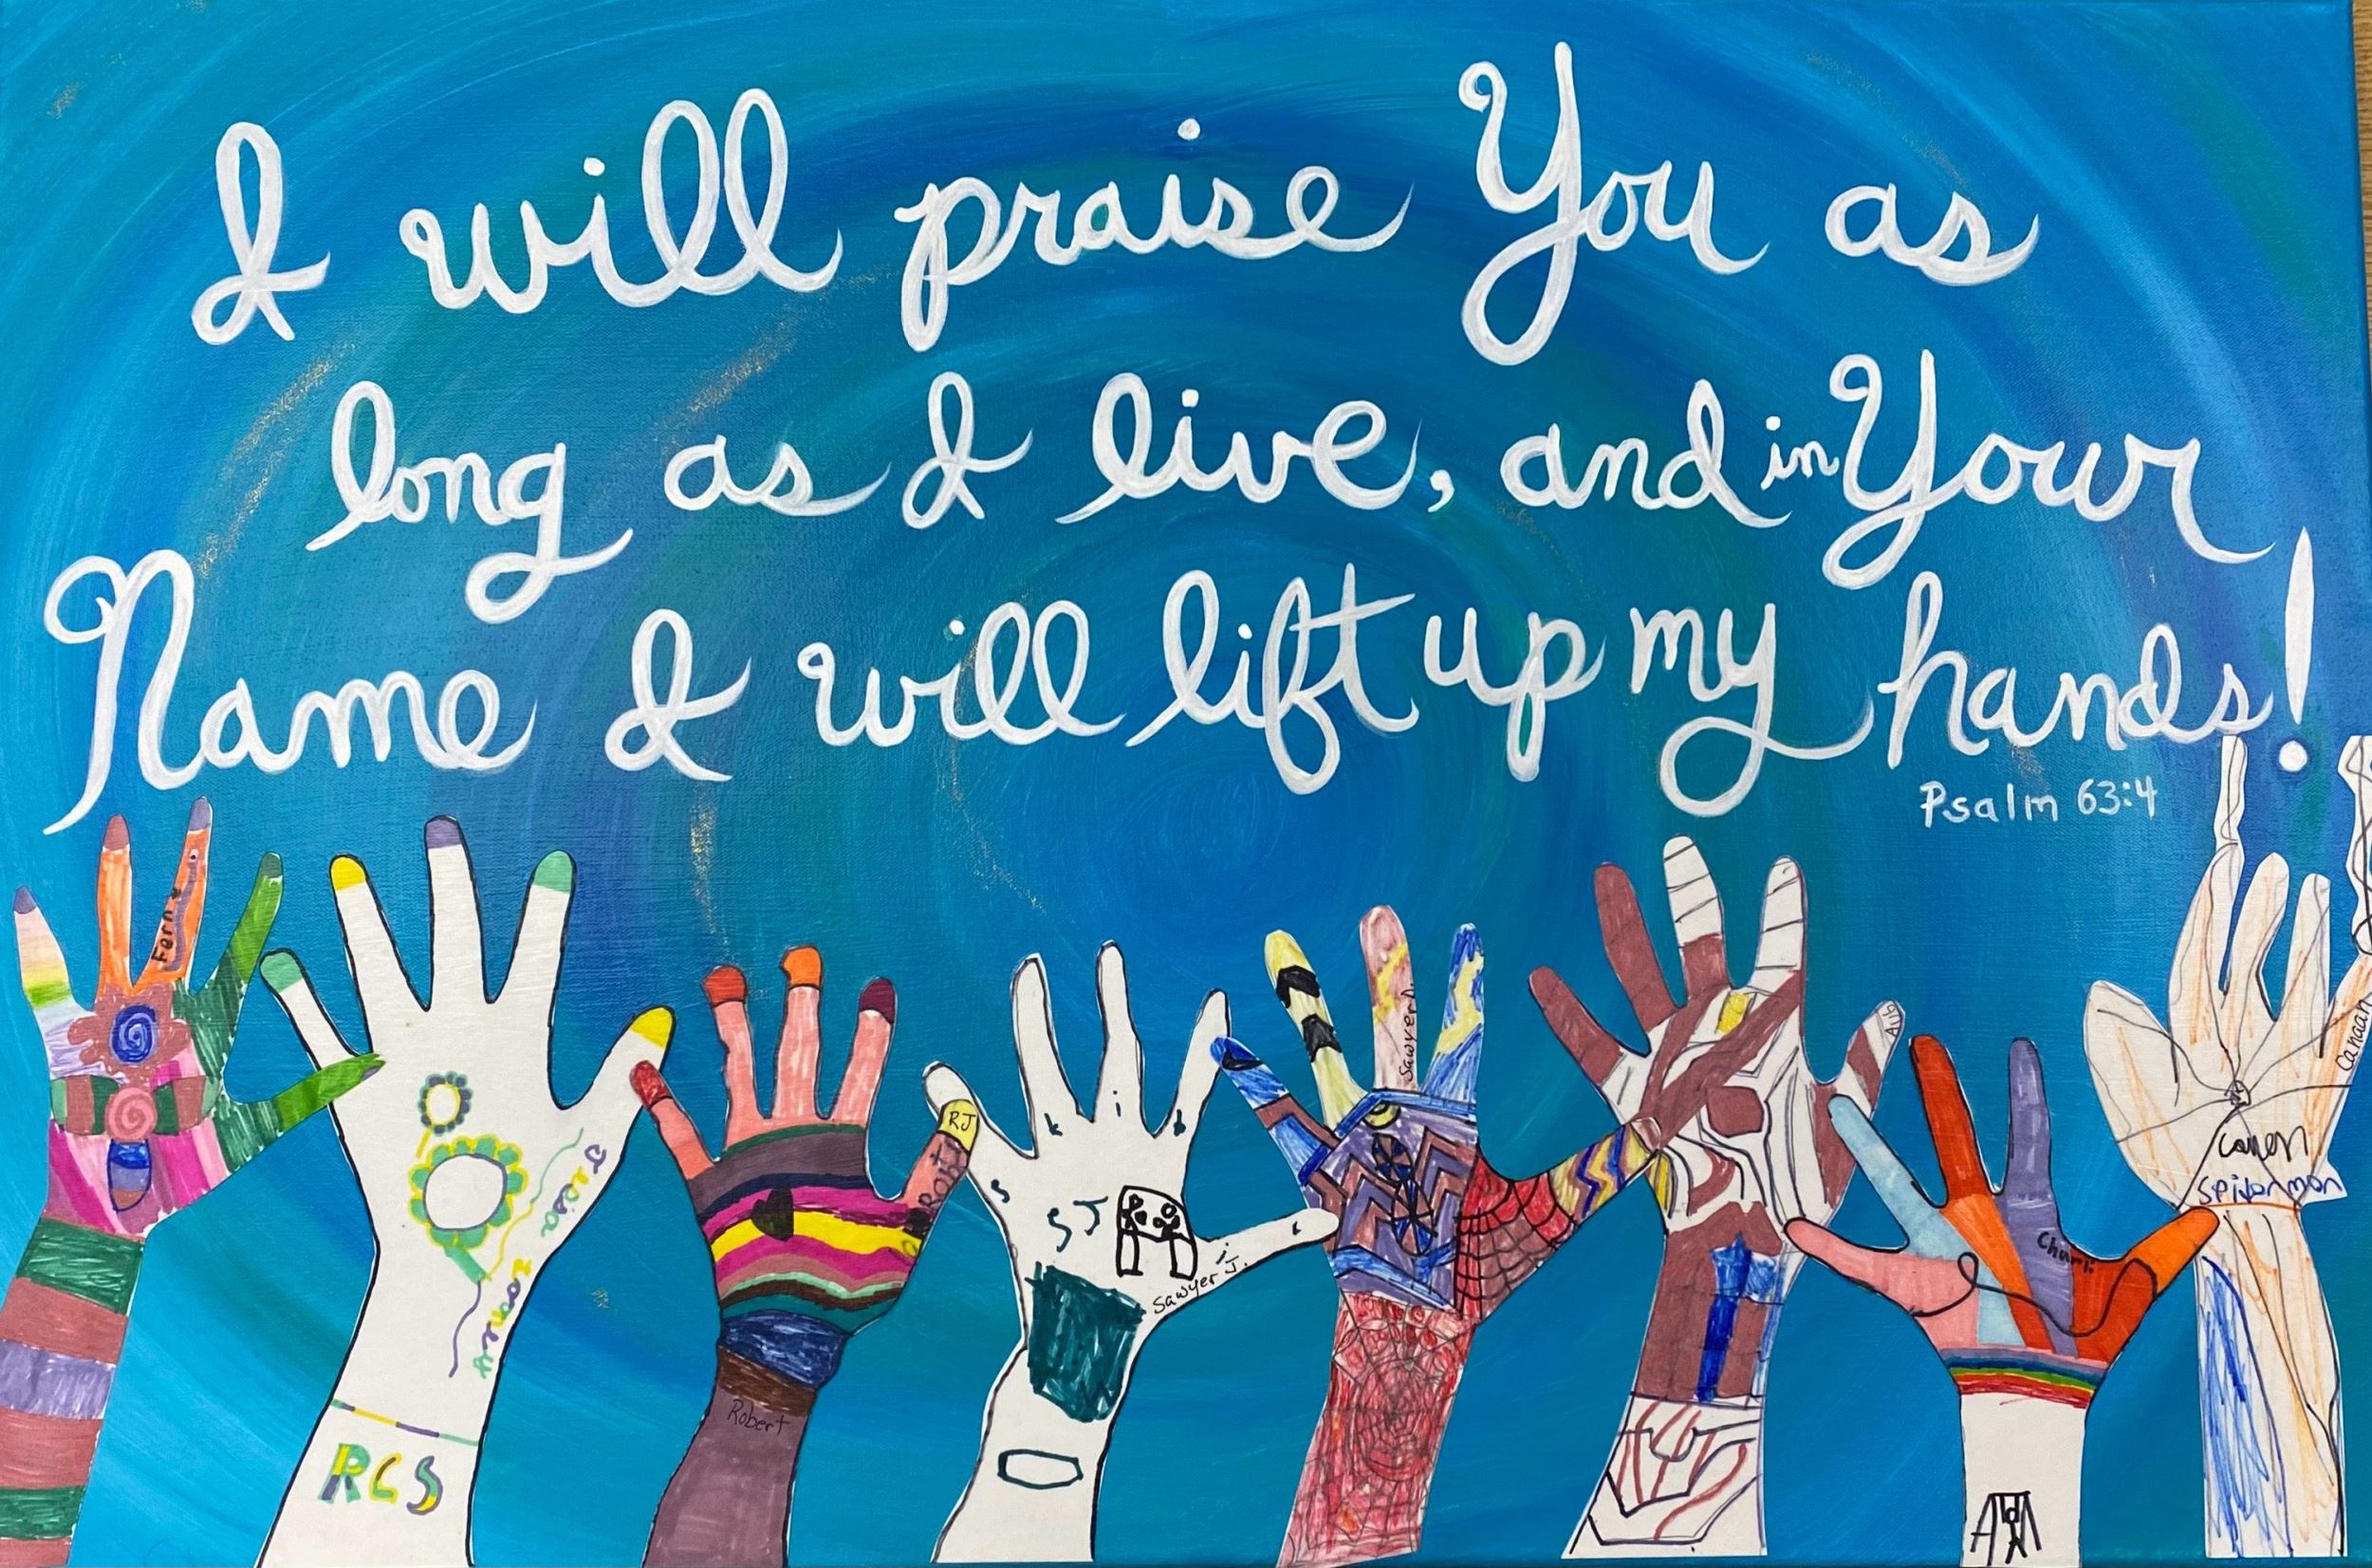 I will praise You as
long as I live, and in Your
Name I will lift up my hands!
Psalm 63:4
Ferne
RCS
RJ
Robert
k i d
s
SJ
Sawyer J.
Sawyer D.
Charli
Canaan
canen
spidorman